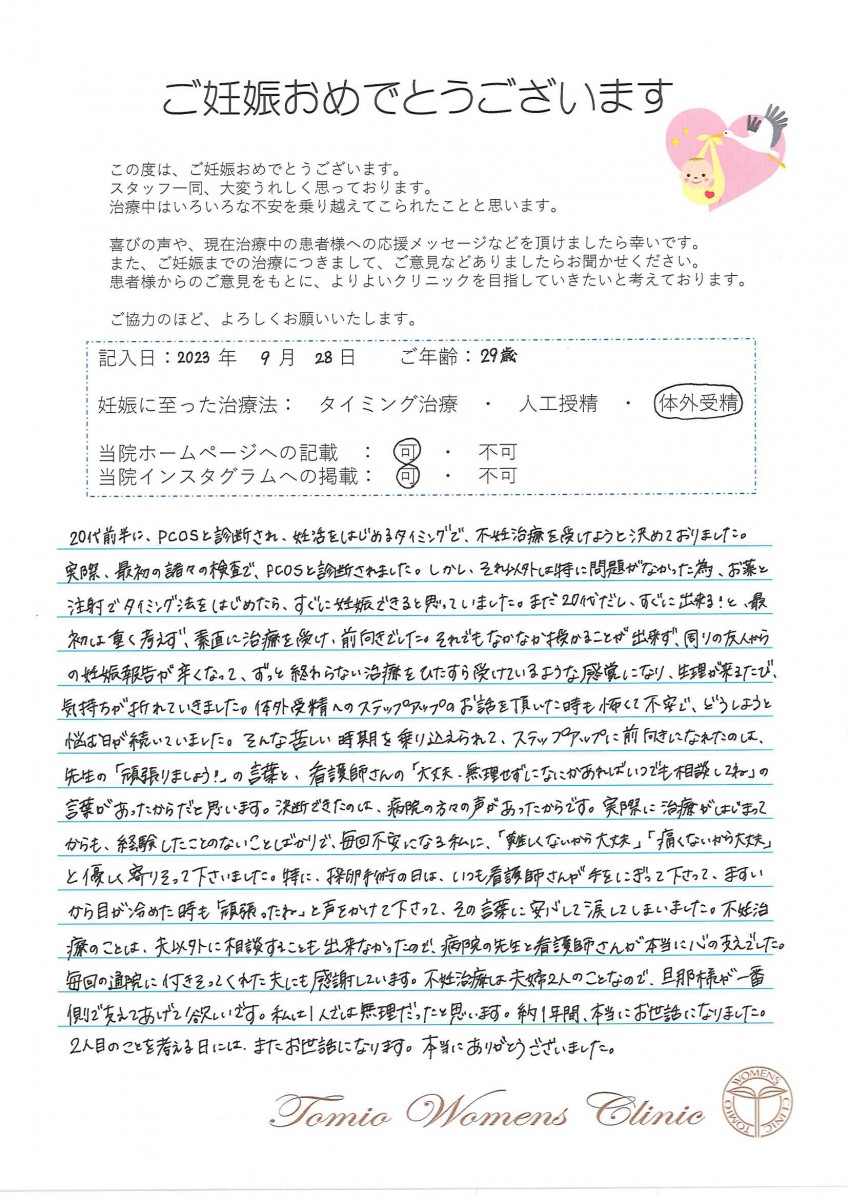 ご妊娠おめでとうございます
この度は、ご妊娠おめでとうございます。
スタッフ一同、大変うれしく思っております。
治療中はいろいろな不安を乗り越えてこられたことと思います。
喜びの声や、現在治療中の患者様への応援メッセージなどを頂けましたら幸いです。
また、ご妊娠までの治療につきまして、ご意見などありましたらお聞かせください。
患者様からのご意見をもとに、よりよいクリニックを目指していきたいと考えております。
ご協力のほど、よろしくお願いいたします。
記入日：2023 年 9 月 28 日 ご年齢：29歳
妊娠に至った治療法： タイミング治療 ・ 人工授精 ・ 体外受精
当院ホームページへの記載 ： 可 ・ 不可
当院インスタグラムへの掲載： 可 ・ 不可
20代前半に、PCOSと診断され、妊活をはじめるタイミングで、不妊治療を受けようと決めておりました。
実際、最初の諸々の検査で、PCOSと診断されました。しかし、それ以外は特に問題がなかった為、お薬と
注射でタイミング法をはじめたら、すぐに妊娠できると思っていました。まだ20代だし、すぐに出来る！と、最
初は重く考えず、素直に治療を受け、前向きでした。それでもなかなか授かることが出来ず、周りの友人から
の妊娠報告が辛くなって、ずっと終わらない治療をひたすら受けているような感覚になり、生理が来るたび、
気持ちが折れていきました。体外受精へのステップアップのお話を頂いた時も怖くて不安で、どうしようと
悩む日が続いていました。そんな苦しい時期を乗り込えられて、ステップアップに前向きになれたのは、
先生の「頑張りましょう！」の言葉と、看護師さんの「大丈夫・無理せずになにかあればいつでも相談してね」の
言葉があったからだと思います。決断できたのは、病院の方々の声があったからです。実際に治療がはじまって
からも、経験したことのないことばかりで、毎回不安になる私に、「難しくないから大丈夫」「痛くないから大丈夫」
と優しく寄りそって下さいました。特に、採卵手術の日は、いつも看護師さんが手をにぎって下さって、ますい
から目が冷めた時も「頑張ったね」と声をかけて下さって、その言葉に安心して涙してしまいました。不妊治
療のことは、夫以外に相談することも出来なかったので、病院の先生と看護師さんが本当に心の支えでした。
毎回の通院に付きそってくれた夫にも感謝しています。不妊治療は夫婦2人のことなので、旦那様が一番
側で支えてあげて欲しいです。私は1人では無理だったと思います。約1年間、本当にお世話になりました。
2人目のことを考える日には、またお世話になります。本当にありがとうございました。
Tomio Womens Clinic
TOMIO WOMENS CLINIC